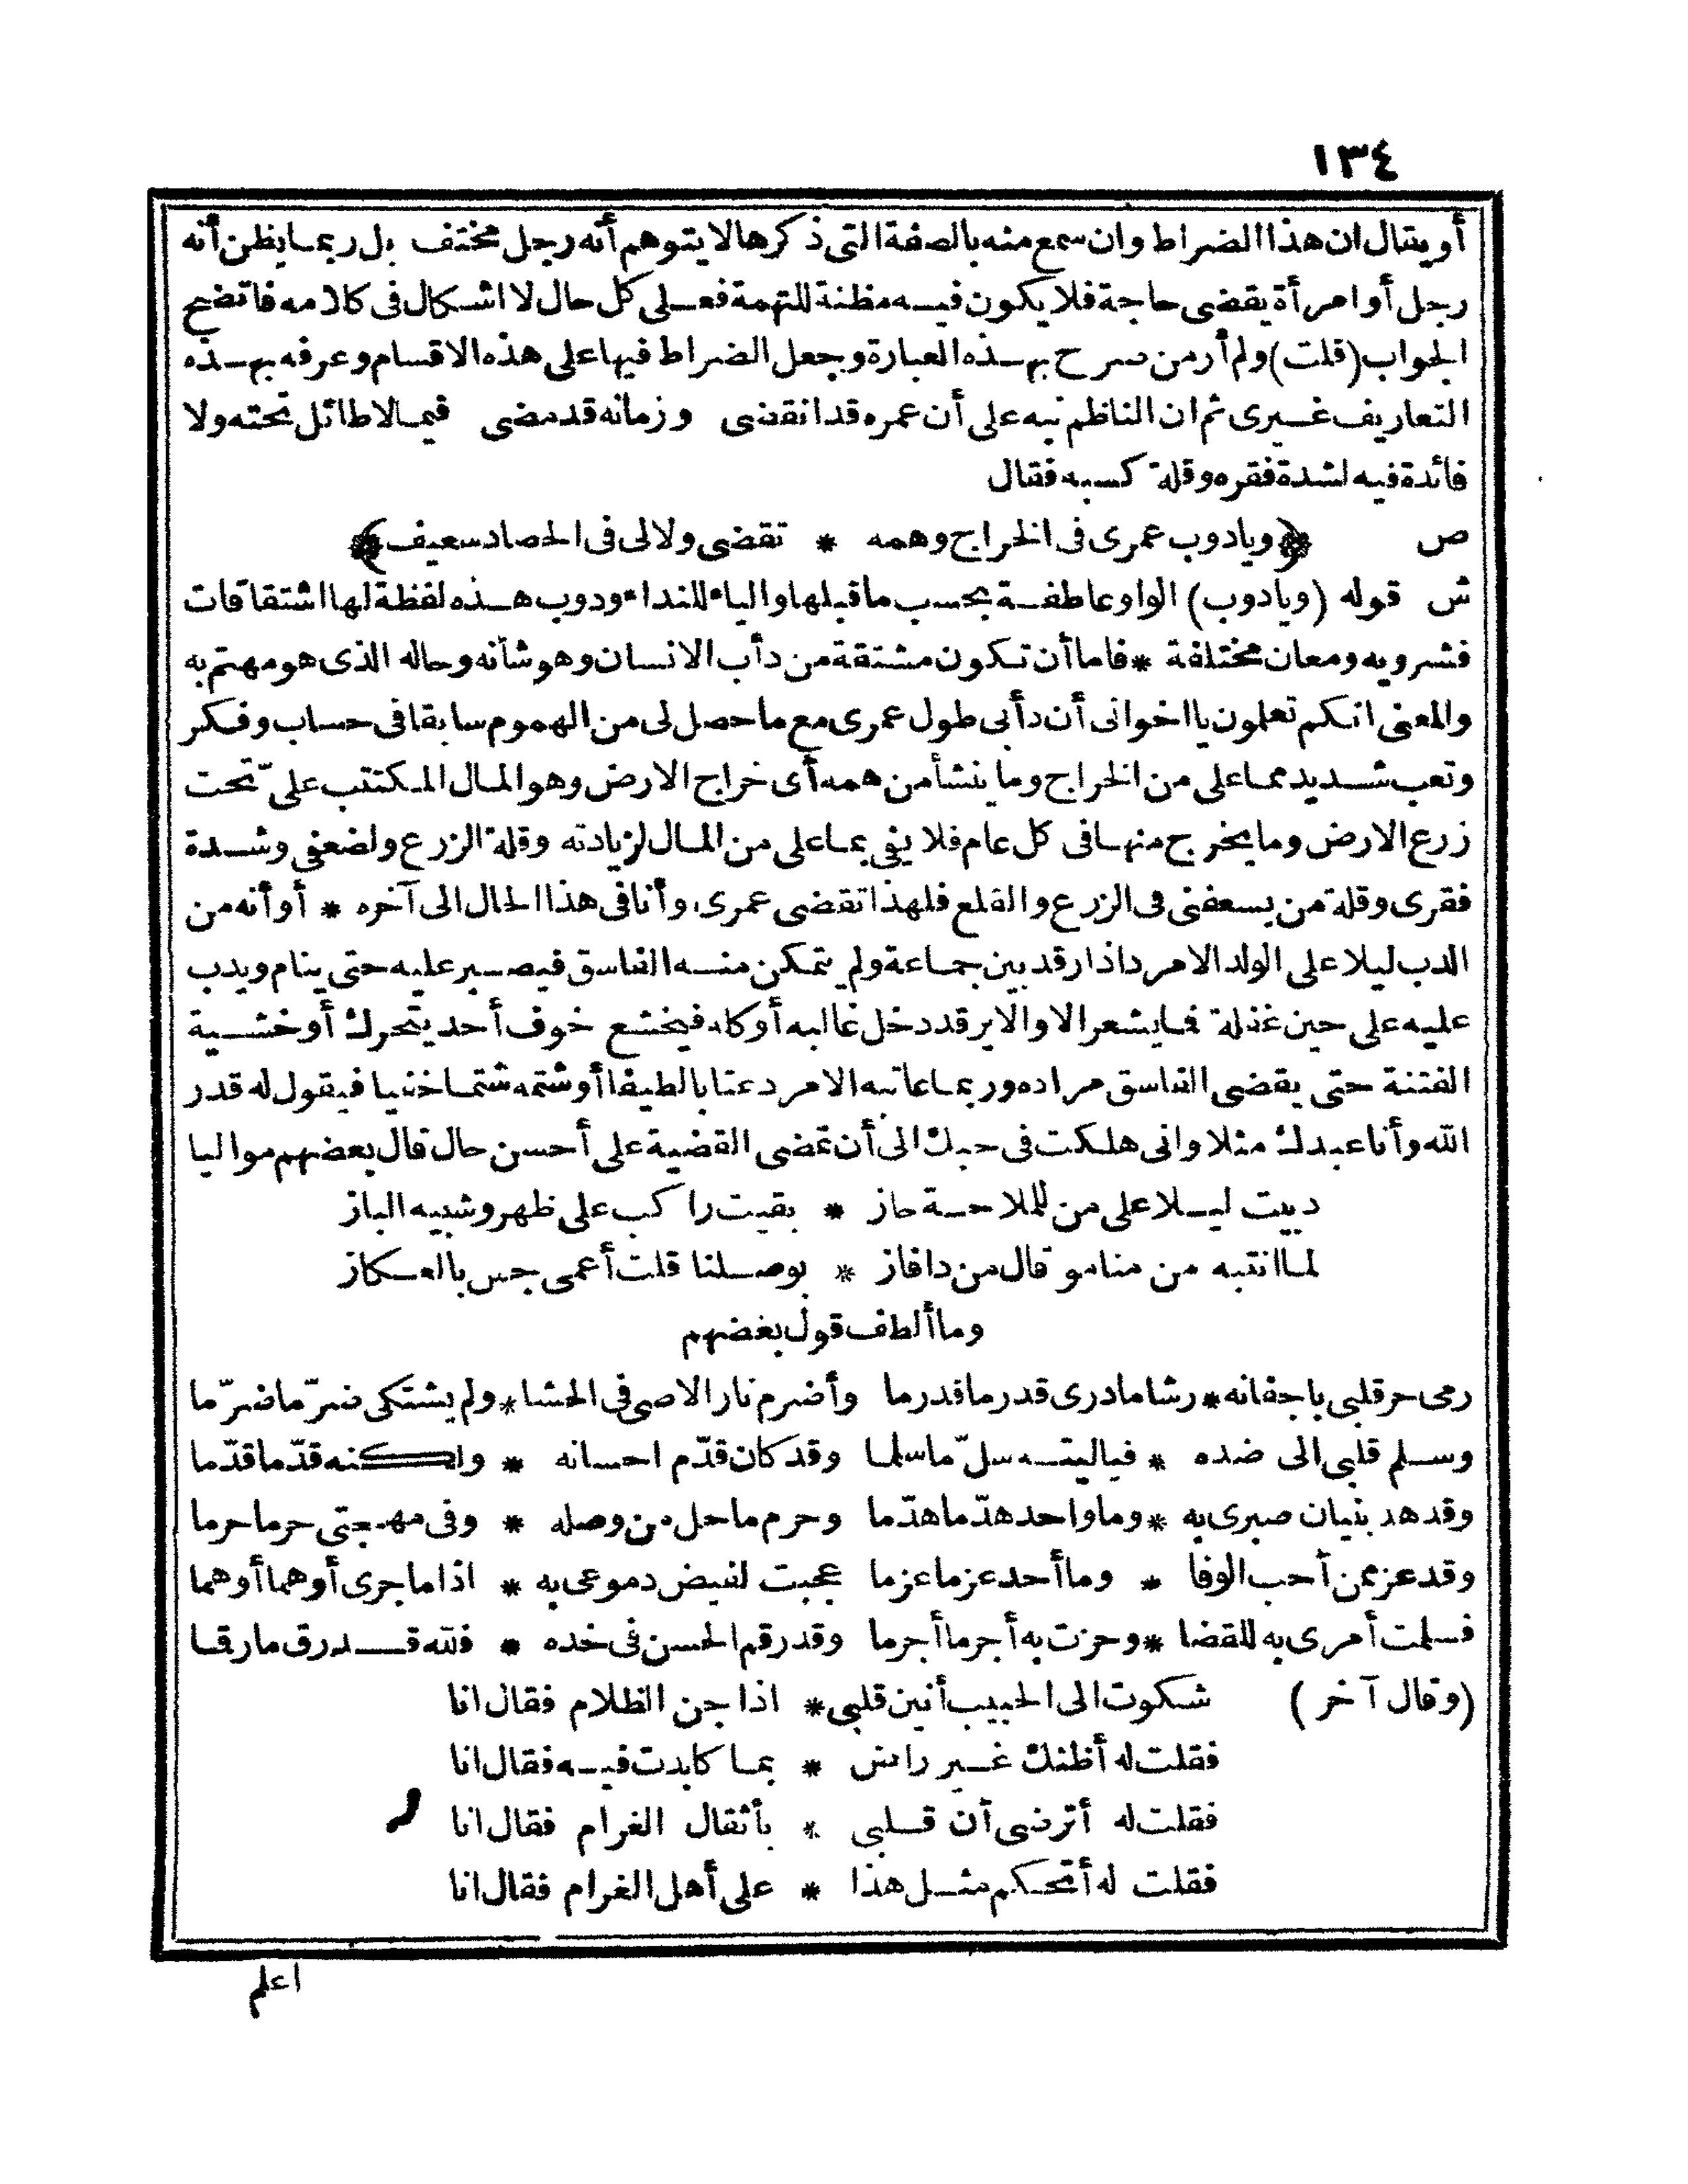 ١٣٤
أو يقال ان هذا الضراط وان سمع منه بالصفة التى ذكرها لا يتوهم أنه رجل مختف بل ربما يظن أنه
رجل أو امرأة يقضى حاجة فلا يكون فيه مظنة للتهمة فعلى كل حال لا اشكال فى كلامه فاتضح
الجواب (قلت) ولم أر من صرح بهذه العبارة وجعل الضراط فيها على هذه الاقسام وعرفه بهذه
التعاريف غيرى ثم ان الناظم نبه على أن عمره قد انقضى وزمانه قد مضى فيما لا طائل تحته ولا
فائدة فيه لشدة فقره وقلة كسبه فقال
ص ﴿ويادوب عمرى فى الخراج وهمه * تقضى ولا لى فى الحصاد سعيف﴾
ش قوله (ويادوب) الواو عاطفة بحسب ما قبلها والياء للنداء ودوب هذه لفظة لها اشتقاقات
فشرويه ومعان مختلفة * فاما أن تكون مشتقة من دأب الانسان وهو شأنه وحاله الذى هو مهتم به
والمعنى انكم تعلون يا اخوانى أن دأبى طول عمرى مع ما حصل لى من الهموم سابقا فى حساب وفكر
وتعب شديد مما على من الخراج وما ينشأ من همه أى خراج الارض وهو المال المكتتب علىّ تحت
زرع الارض وما يخرج منها فى كل عام فلا يفى بما على من المال لزيادته وقلة الزرع ولضعفى وشدة
فقرى وقلة من يسعفنى فى الزرع والقلع فلهذا تقضى عمرى وأنا فى هذا الحال الى آخره * أو أنه من
الدب ليلا على الولد الامرد اذا رقد بين جماعة ولم يتمكن منه الفاسق فيصبر عليه حتى ينام ويدب
عليه على حين غفلة فما يشعر الا والاير قد دخل غالبه أو كله فيخشع خوف أحد يتحرك أو خشية
الفتنة حتى يقضى الفاسق مراده وربما عاتبه الامرد عتابا لطيفا أو شتمه شتما خفيا فيقول له قدر
الله وأنا عبدك مثلا وانى هلكت فى حبك الى أن تمضى القضية على أحسن حال قال بعضهم مواليا
دبيت ليلا على من للملاحة حاز * بقيت راكب على ظهر وشبيه الباز
لما انتبه من منامو قال من دا فاز * بوصلنا قلت أعمى جس بالعكاز
وما ألطف قول بعضهم
رمى حر قلبى باجفانه * رشا ما درى قدر ما قدرما وأضرم نار الاصى فى الحشا * ولم يشتكى ضرّ ما ضرّ ما
وسلم قلبى الى ضده * فياليته سلّ ما سلما وقد كان قدّم احسانه * ولكنه قدّ ما قدّما
وقد هد بنيان صبرى به * وما واحد هدّ ما هدّما وحرم ما حل من وصله * وفى مهجتى حرما حرما
وقد عز ممن أحب الوفا * وما أحد عز ما عزما عجبت لفيض دموعى به * اذا ما جرى أوهما أوهما
فسلمت أمرى به للقضا * وحزت به أجرما أجرما وقد رقم الحسن فى خده * فلله قد رق ما رقا
(وقال آخر) شكوت الى الحبيب أنين قلبى * اذا جن الظلام فقال انا
فقلت له أظنك غير راض * بما كابدت فيه فقال انا
فقلت له أترضى أن قلبى * بأثقال الغرام فقال انا
فقلت له أتحكم مثل هذا * على أهل الغرام فقال انا
اعلم